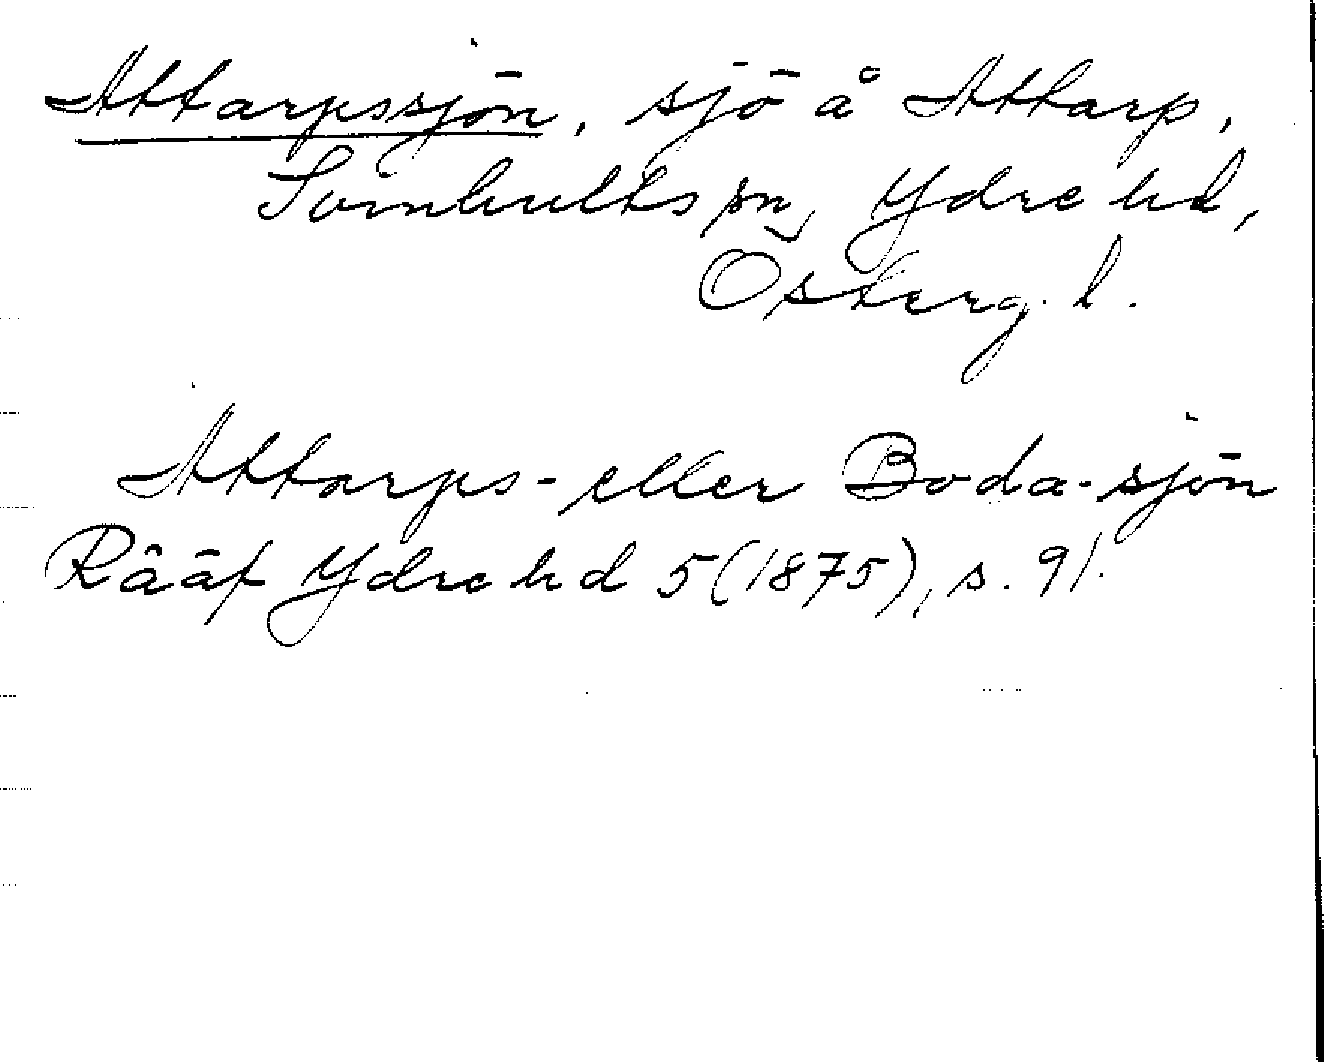 Attarpssjön, sjö å Attarp,
Svinhults sn, Ydre hd,
Österg. l.
Attarps- eller Boda-sjön
Rääf Ydre hd 5 (1875), s. 91.